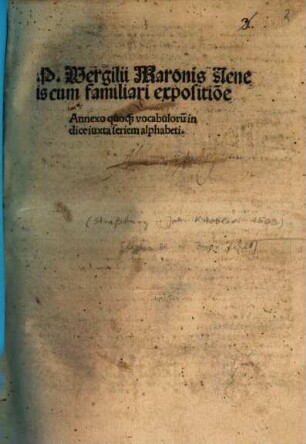 P. Vergilii Maronis Aene
is cum familiari expositiõe
Annexo quoqꝫ vocabulorũ in
dice iuxta seriem alphabeti.
(Straßburg : Joh. Knobloch 1509)